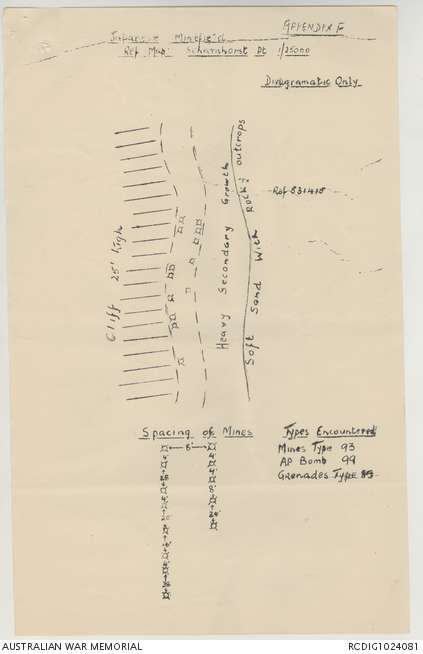 APPENDIX F
Japanese Minefield
Ref Map: Scharnhorst Pt 1/25000
Diagramatic Only
Ref 831418
Cliff 25' high
Heavy Secondary Growth
Soft Sand With Rocky outcrops
Spacing of Mines
8'
4'
4'
4'
8'
4'
Types Encountered
Mines Type 93
AP Bomb 99
Grenades Type
AUSTRALIAN WAR MEMORIAL
RCDIG1024081